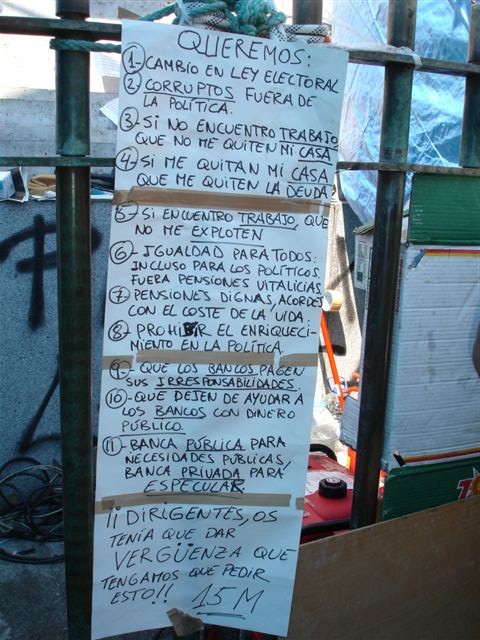 QUEREMOS:
1 CAMBIO EN LEY ELECTORAL
2 CORRUPTOS FUERA DE
LA POLÍTICA.
3- SI NO ENCUENTRO TRABAJO
QUE NO ME QUITEN MI CASA
4- SI ME QUITAN MI CASA
QUE ME QUITEN LA DEUDA
5- SI ENCUENTRO TRABAJO, QUE
NO ME EXPLOTEN
6- IGUALDAD PARA TODOS:
INCLUSO PARA LOS POLÍTICOS.
FUERA PENSIONES VITALICIAS
7- PENSIONES DIGNAS, ACORDES
CON EL COSTE DE LA VIDA.
8- PROHIBIR EL ENRIQUECI-
MIENTO EN LA POLÍTICA
9- QUE LOS BANCOS PAGEN
SUS IRRESPONSABILIDADES.
10- QUE DEJEN DE AYUDAR A
LOS BANCOS CON DINERO
PÚBLICO
11- BANCA PÚBLICA PARA
NECESIDADES PÚBLICAS,
BANCA PRIVADA PARA
ESPECULAR
¡¡DIRIGENTES, OS
TENÍA QUE DAR
VERGÜENZA QUE
TENGAMOS QUE PEDIR
ESTO!! 15M